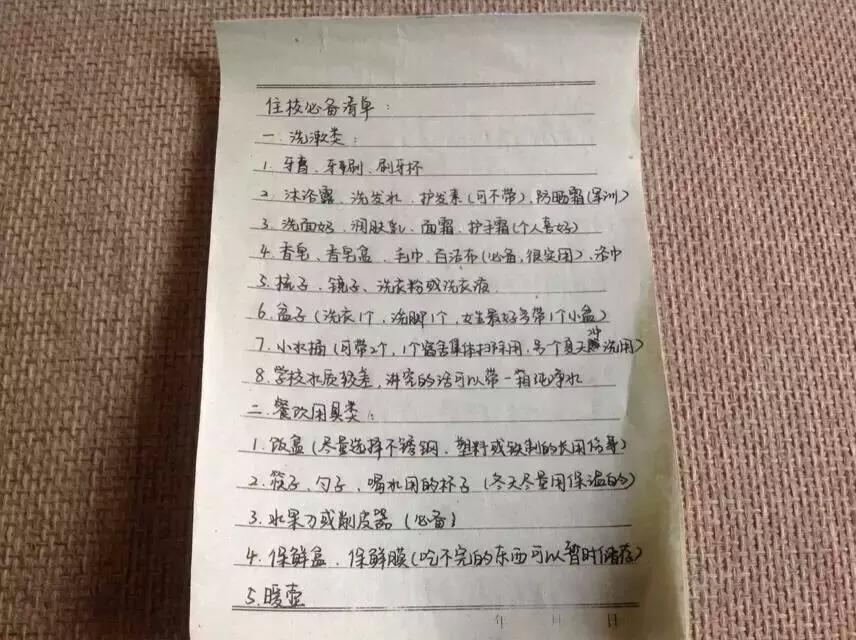 住校必备清单：
一.洗漱类：
1.牙膏、牙刷、刷牙杯
2.沐浴露、洗发水、护发素(可不带)、防晒霜(军训)
3.洗面奶、润肤乳、面霜、护手霜(个人喜好)
4.香皂、香皂盒、毛巾、百洁布(必备,很实用)、浴巾
5.梳子、镜子、洗衣粉或洗衣液
6.盆子(洗衣1个,洗脚1个,女生最好多带1个小盆)
7.小水桶(可带2个,1个宿舍集体扫除用,另个夏天冲洗用)
8.学校水质较差,讲究的话可以带一箱纯净水
二.餐饮用具类：
1.饭盒(尽量选择不锈钢,塑料或铁制的长用伤身)
2.筷子、勺子、喝水用的杯子(冬天尽量用保温的)
3.水果刀或削皮器(必备)
4.保鲜盒、保鲜膜(吃不完的东西可以暂时储存)
5.暖壶
年 月 日